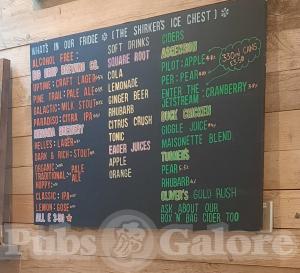 WHAT'S IN OUR FRIDGE * [THE SHIRKER'S ICE CHEST] *
ALCOHOL FREE:
BIG DROP BREWING CO.
UPTIME: CRAFT LAGER
PINE TRAIL: PALE ALE
GALACTIC: MILK STOUT
PARADISO: CITRA IPA
NIRVANA BREWERY
HELLES: LAGER
DARK & RICH: STOUT
ORGANIC PALE
TRADITIONAL: ALE
HOPPY:
CLASSIC: IPA
LEMON: GOSE
ALL £
SOFT DRINKS
SQUARE ROOT
COLA
LEMONADE
GINGER BEER
RHUBARB
CITRUS CRUSH
TONIC
EAGER JUICES
APPLE
ORANGE
CIDERS
ASCENSION
PILOT: APPLE
PER: PEAR
ENTER THE
JETSTREAM: CRANBERRY
DUCK CHICKEN
GIGGLE JUICE
MAISONETTE BLEND
TURNERS
PEAR
RHUBARB
OLIVER'S GOLD RUSH
ASK ABOUT OUR
BOX 'N' BAG CIDER TOO
330ML CANS
Pubs Galore